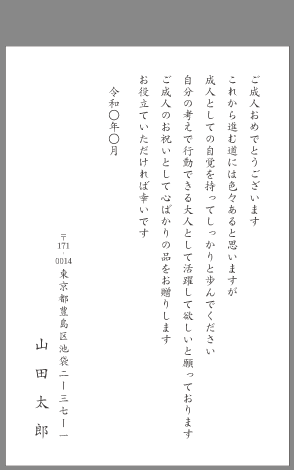 ご成人おめでとうございます
これから進む道には色々あると思いますが
成人としての自覚を持ってしっかりと歩んでください
自分の考えで行動できる大人として活躍して欲しいと願っております
ご成人のお祝いとして心ばかりの品をお贈りします
お役立ていただければ幸いです
令和〇年〇月
〒171-0014 東京都豊島区池袋二ー三七ー一
山田太郎